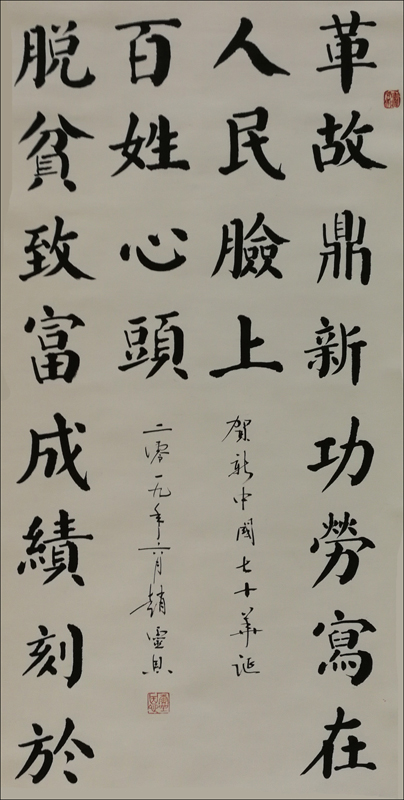 革故鼎新功勞寫在
人民臉上
脫貧致富成績刻於
百姓心頭
賀新中國七十華誕
二零一九年六月趙靈